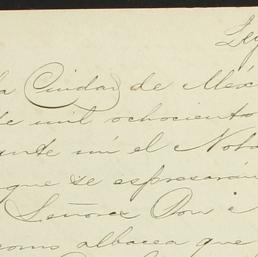 la Ciudad de Méxic
de mil ochociento
ante mí el Nota
que se espresarán
Señores Don
como albacea que